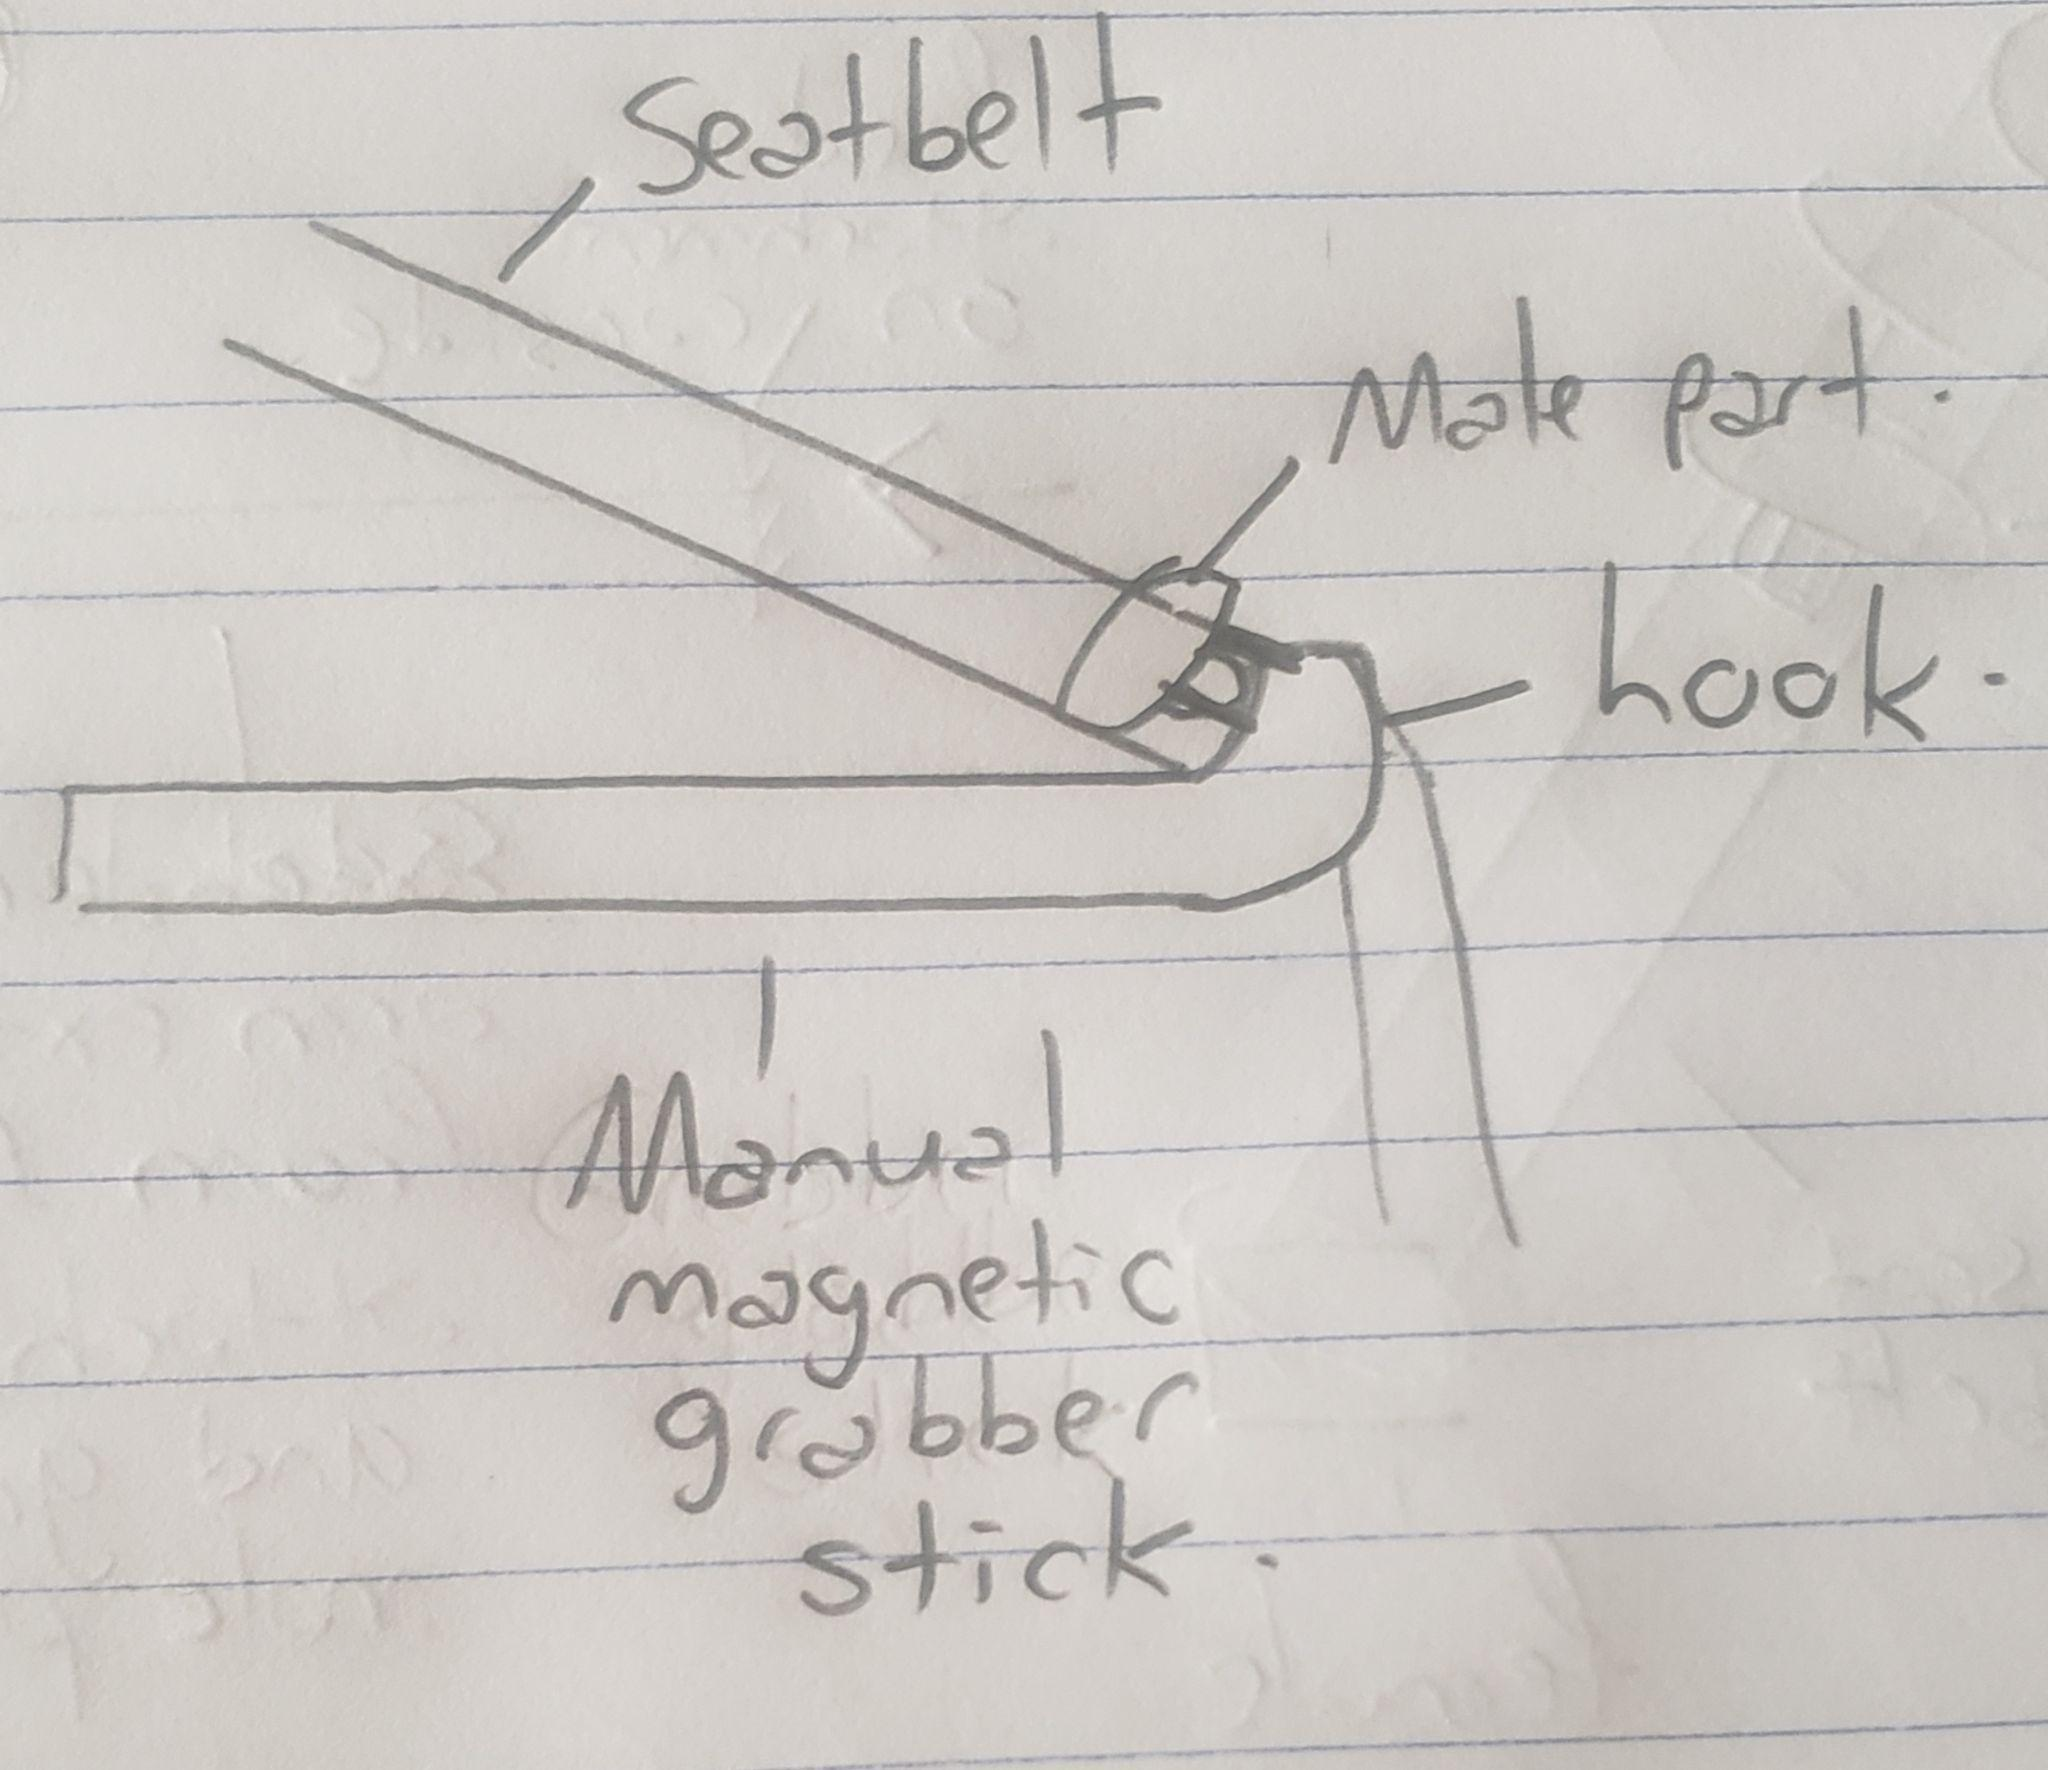 Seatbelt
Male part.
hook.
Manual
magnetic
grabber
stick.